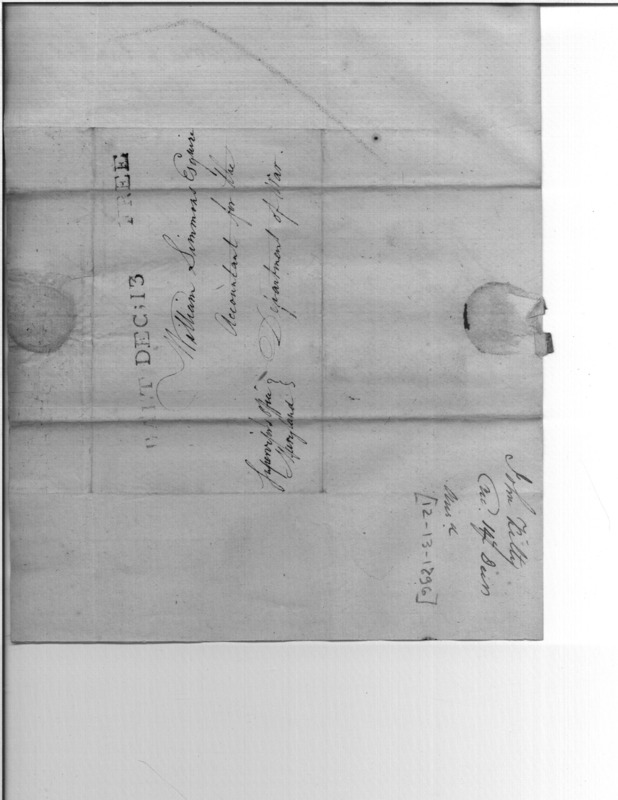 FREE
BALT DEC:13
William Simmons Esquire
Accountant for the
Department of War.
Supervisor's Office
Maryland
John Kilty
14th Decr
[12-13-1796]